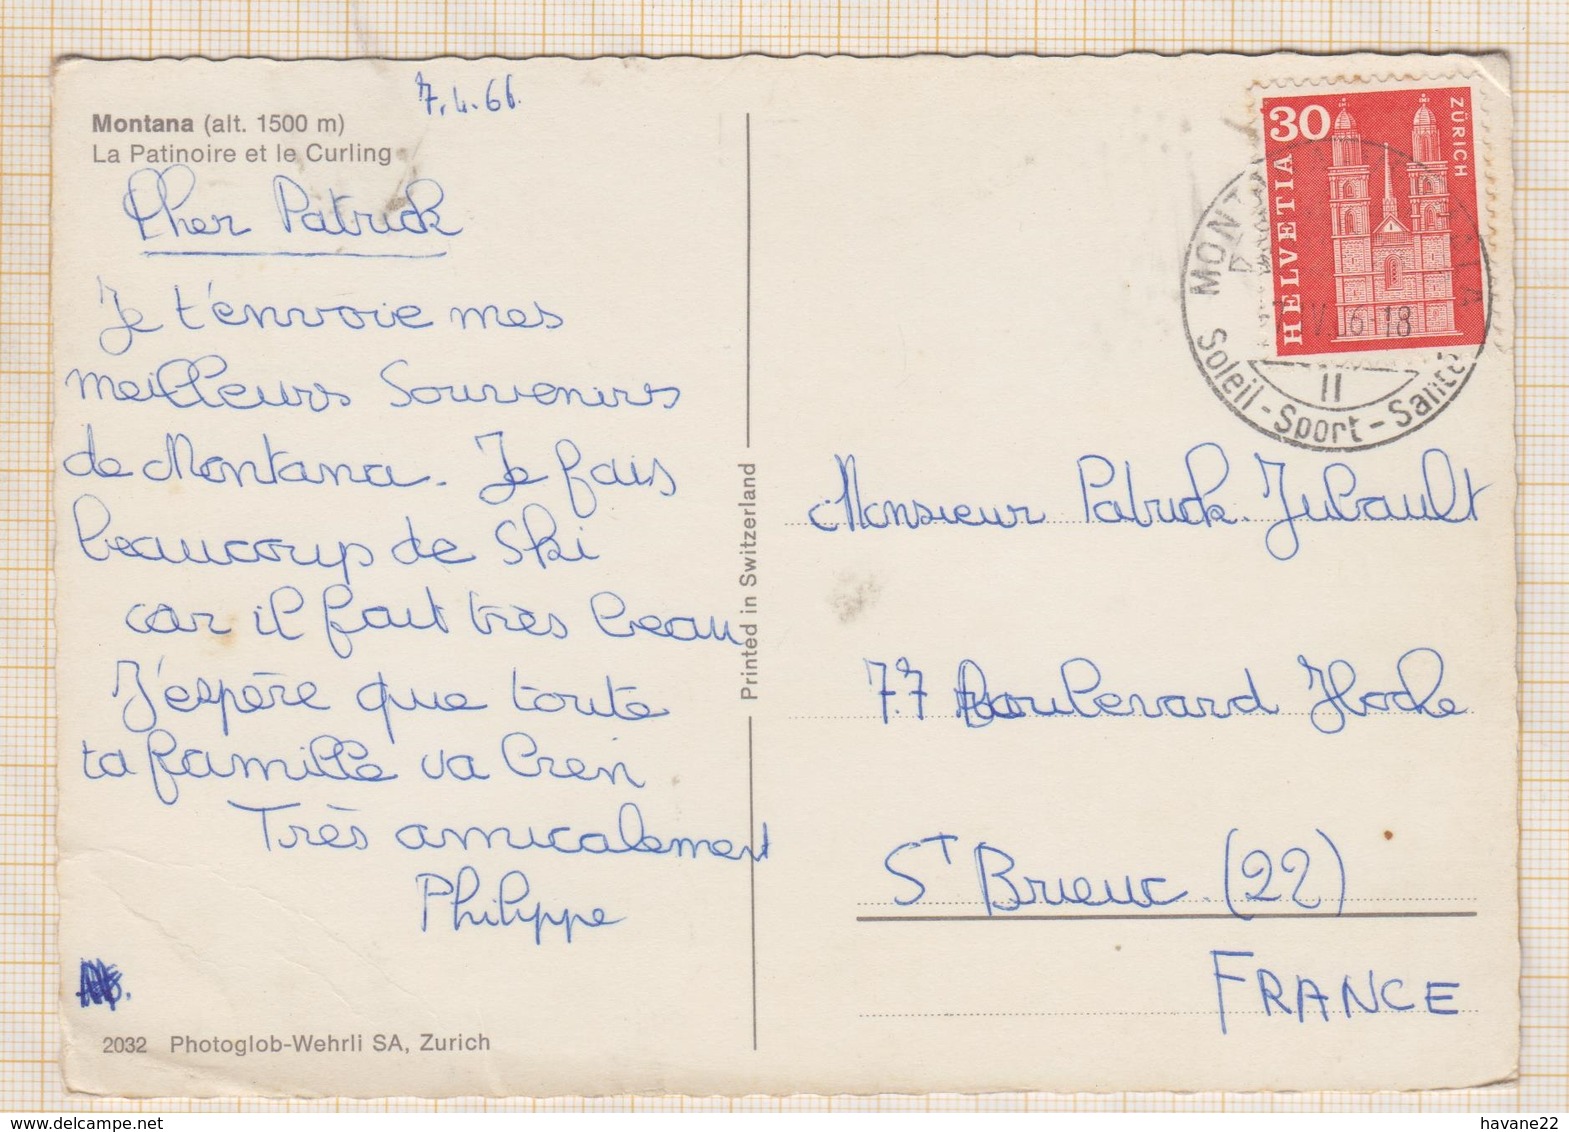 7.4.66.
Montana (alt. 1500 m)
La Patinoire et le Curling
Cher Patrick
Je t'envoie mes
meilleurs Souvenirs
de Montana. Je fais
beaucoup de Ski
car il fait très beau
J'espère que toute
ta famille va bien
Très amicalement
Philippe
2032 Photoglob-Wehrli SA, Zurich
Printed in Switzerland
30
HELVETIA
ZÜRICH
II
Soleil-Sport-Santé
Monsieur Patrick Jubault
77 Boulevard Hoche
St Brieuc (22)
FRANCE
www.delcampe.net
havane22